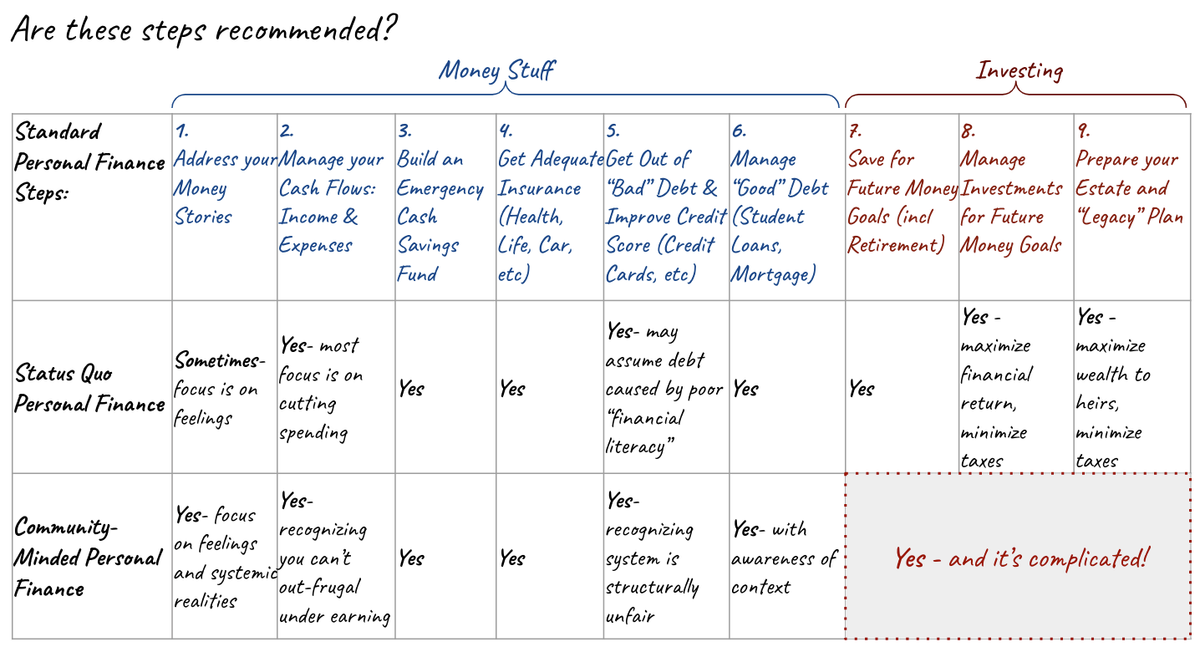 Are these steps recommended?
Money Stuff
Investing
Standard
Personal Finance
Steps:
1.
Address your
Money
Stories
2.
Manage your
Cash Flows:
Income &
Expenses
3.
Build an
Emergency
Cash
Savings
Fund
4.
Get Adequate
Insurance
(Health,
Life, Car,
etc)
5.
Get Out of
“Bad” Debt &
Improve Credit
Score (Credit
Cards, etc)
6.
Manage
“Good” Debt
(Student
Loans,
Mortgage)
7.
Save for
Future Money
Goals (incl
Retirement)
8.
Manage
Investments
for Future
Money Goals
9.
Prepare your
Estate and
“Legacy” Plan
Status Quo
Personal Finance
Sometimes-
focus is on
feelings
Yes- most
focus is on
cutting
spending
Yes
Yes
Yes- may
assume debt
caused by poor
“financial
literacy”
Yes
Yes
Yes -
maximize
financial
return,
minimize
taxes
Yes -
maximize
wealth to
heirs,
minimize
taxes
Community-
Minded Personal
Finance
Yes- focus
on feelings
and systemic
realities
Yes-
recognizing
you can’t
out-frugal
under earning
Yes
Yes
Yes-
recognizing
system is
structurally
unfair
Yes- with
awareness of
context
Yes - and it’s complicated!